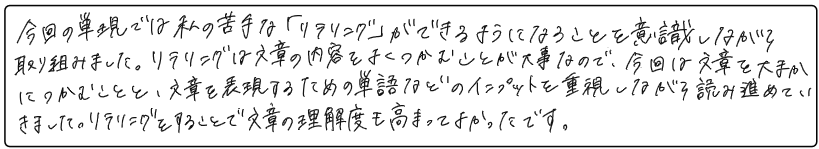 今回の単現では私の苦手な「リテリング」ができるようになることを意識しながら
取り組みました。リテリングは文章の内容をよくつかむことが大事なので、今回は文章を大まか
につかむことと、文章を表現するための単語などのインプットを重視しながら読み進めてい
きました。リテリングをすることで文章の理解度も高まってよかったです。